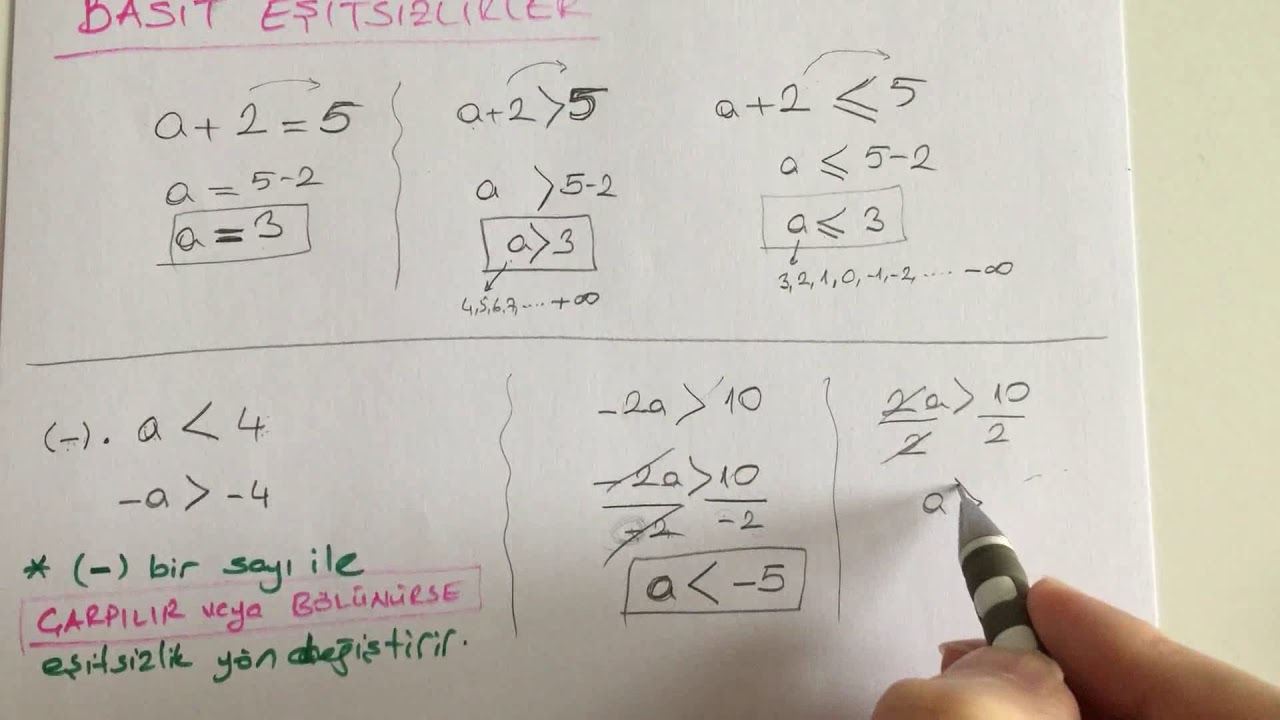 BASİT EŞİTSİZLİKLER
a + 2 = 5
a = 5-2
a = 3
a+2 > 5
a > 5-2
a > 3
4,5,6,7,.... +∞
a + 2 ≤ 5
a ≤ 5-2
a ≤ 3
3,2,1,0,-1,-2,.... -∞
(-). a < 4
-a > -4
* (-) bir sayı ile
ÇARPILIR veya BÖLÜNÜRSE
eşitsizlik yön değiştirir.
-2a > 10
-2a > 10
-2 -2
a < -5
2a > 10
2 2
a >